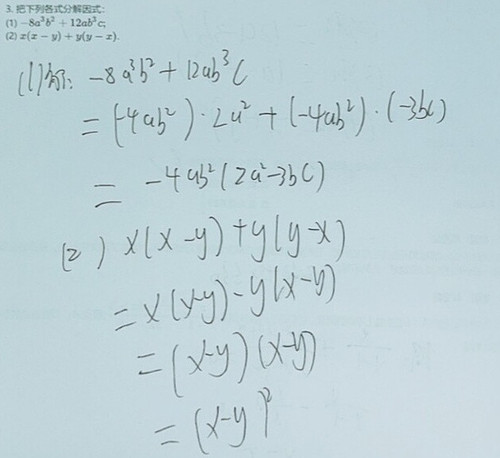 3. 把下列各式分解因式:
(1) −8a³b² + 12ab³c;
(2) x(x − y) + y(y − x).
(1)解: −8a³b² + 12ab³C
= (−4ab²)·2a² + (−4ab²)·(−3bC)
= −4ab²(2a²−3bC)
(2) x(x−y)+y(y−x)
= x(x−y)−y(x−y)
= (x−y)(x−y)
= (x−y)²